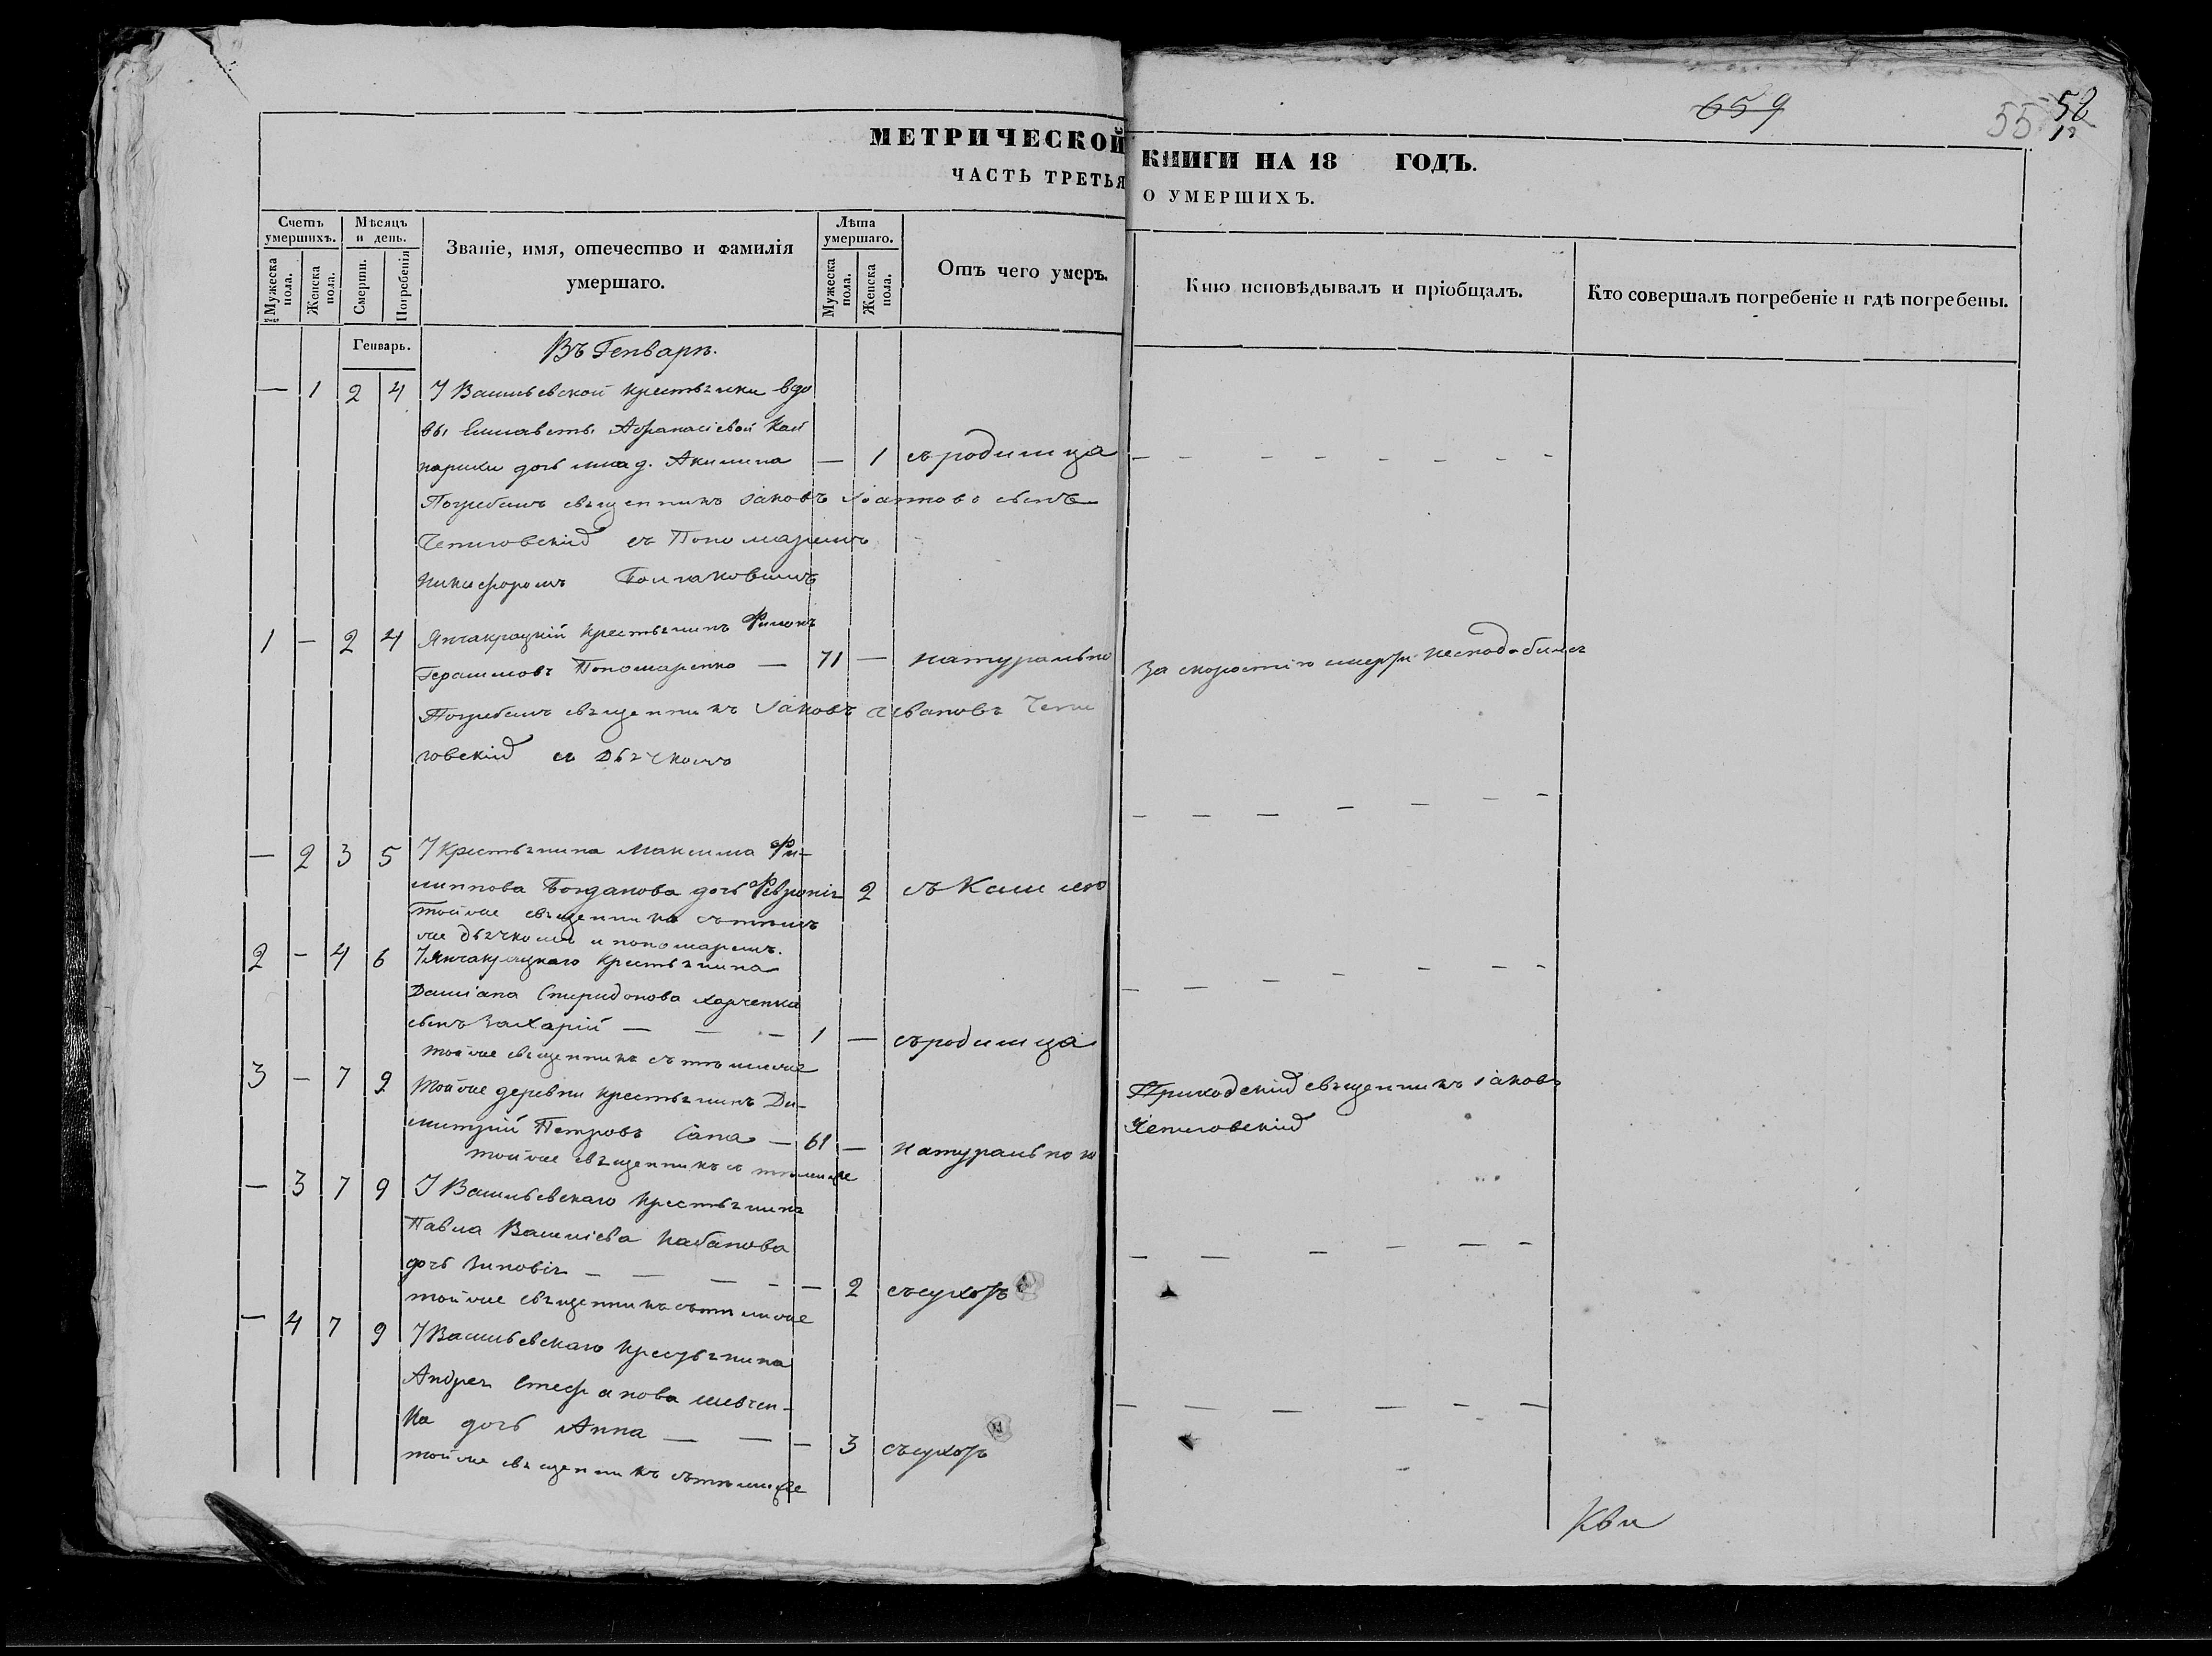 659
55 52
МЕТРИЧЕСКОЙ КНИГИ НА 18 ГОДЪ.
ЧАСТЬ ТРЕТЬЯ О УМЕРШИХЪ.
Счетъ умершихъ.
Мужеска пола.
Женска пола.
Мѣсяцъ и день.
Смерти.
Погребенія
Званіе, имя, отечество и фамилія
умершаго.
Лѣта умершаго.
Мужеска пола.
Женска пола.
Отъ чего умеръ.
Кто исповѣдывалъ и пріобщалъ.
Кто совершалъ погребеніе и гдѣ погребены.
Генварь.
Въ Генварѣ.
— 1 2 4 У Васильевской крестьянки вдо
вы Елисаветы Афанасіевой
дочь млад. Акилина — 1 съ родимца — — — — — — — —
Погребалъ священникъ Іаковъ Іоанновъ сынъ
Чепиговскій съ Пономаремъ
Никифоромъ
1 — 2 4 Янчакрацкій крестьянинъ Филонъ
Герасимовъ Пономаренко — 71 — натурально За скоростію смерти несподобился
Погребалъ священникъ Іаковъ Ивановъ Чепи
говскій съ Дьячкомъ
— — — — — — —
— 2 3 5 У крестьянина Максима Фи-
липпова Богданова дочь Февронія 2 съ Кашлю
тойже священникъ съ тѣмъ
же дьячкомъ и пономаремъ.
2 — 4 6 У Янчакрацкаго крестьянина
Даміана Спиридонова Харченка — — — — — —
сынъ Захарій — — — 1 — съ родимца
тойже священникъ съ тѣмиже
3 — 7 9 Тойже деревни крестьянинъ Ди- Приходскій священникъ Іаковъ
митрій Петровъ Сапа — 61 — натурально Чепиговскій
тойже священникъ съ тѣмиже
— 3 7 9 У Васильевскаго крестьянина
Павла Василіева Кабанова
дочь Зиновія — — — — — 2 съ сухотъ — — — — — —
тойже священникъ съ тѣмиже
— 4 7 9 У Васильевскаго крестьянина
Андрея Стефанова Шевчен-
ка дочь Анна — — — 3 съ сухотъ — — — — — —
тойже священникъ съ тѣмиже